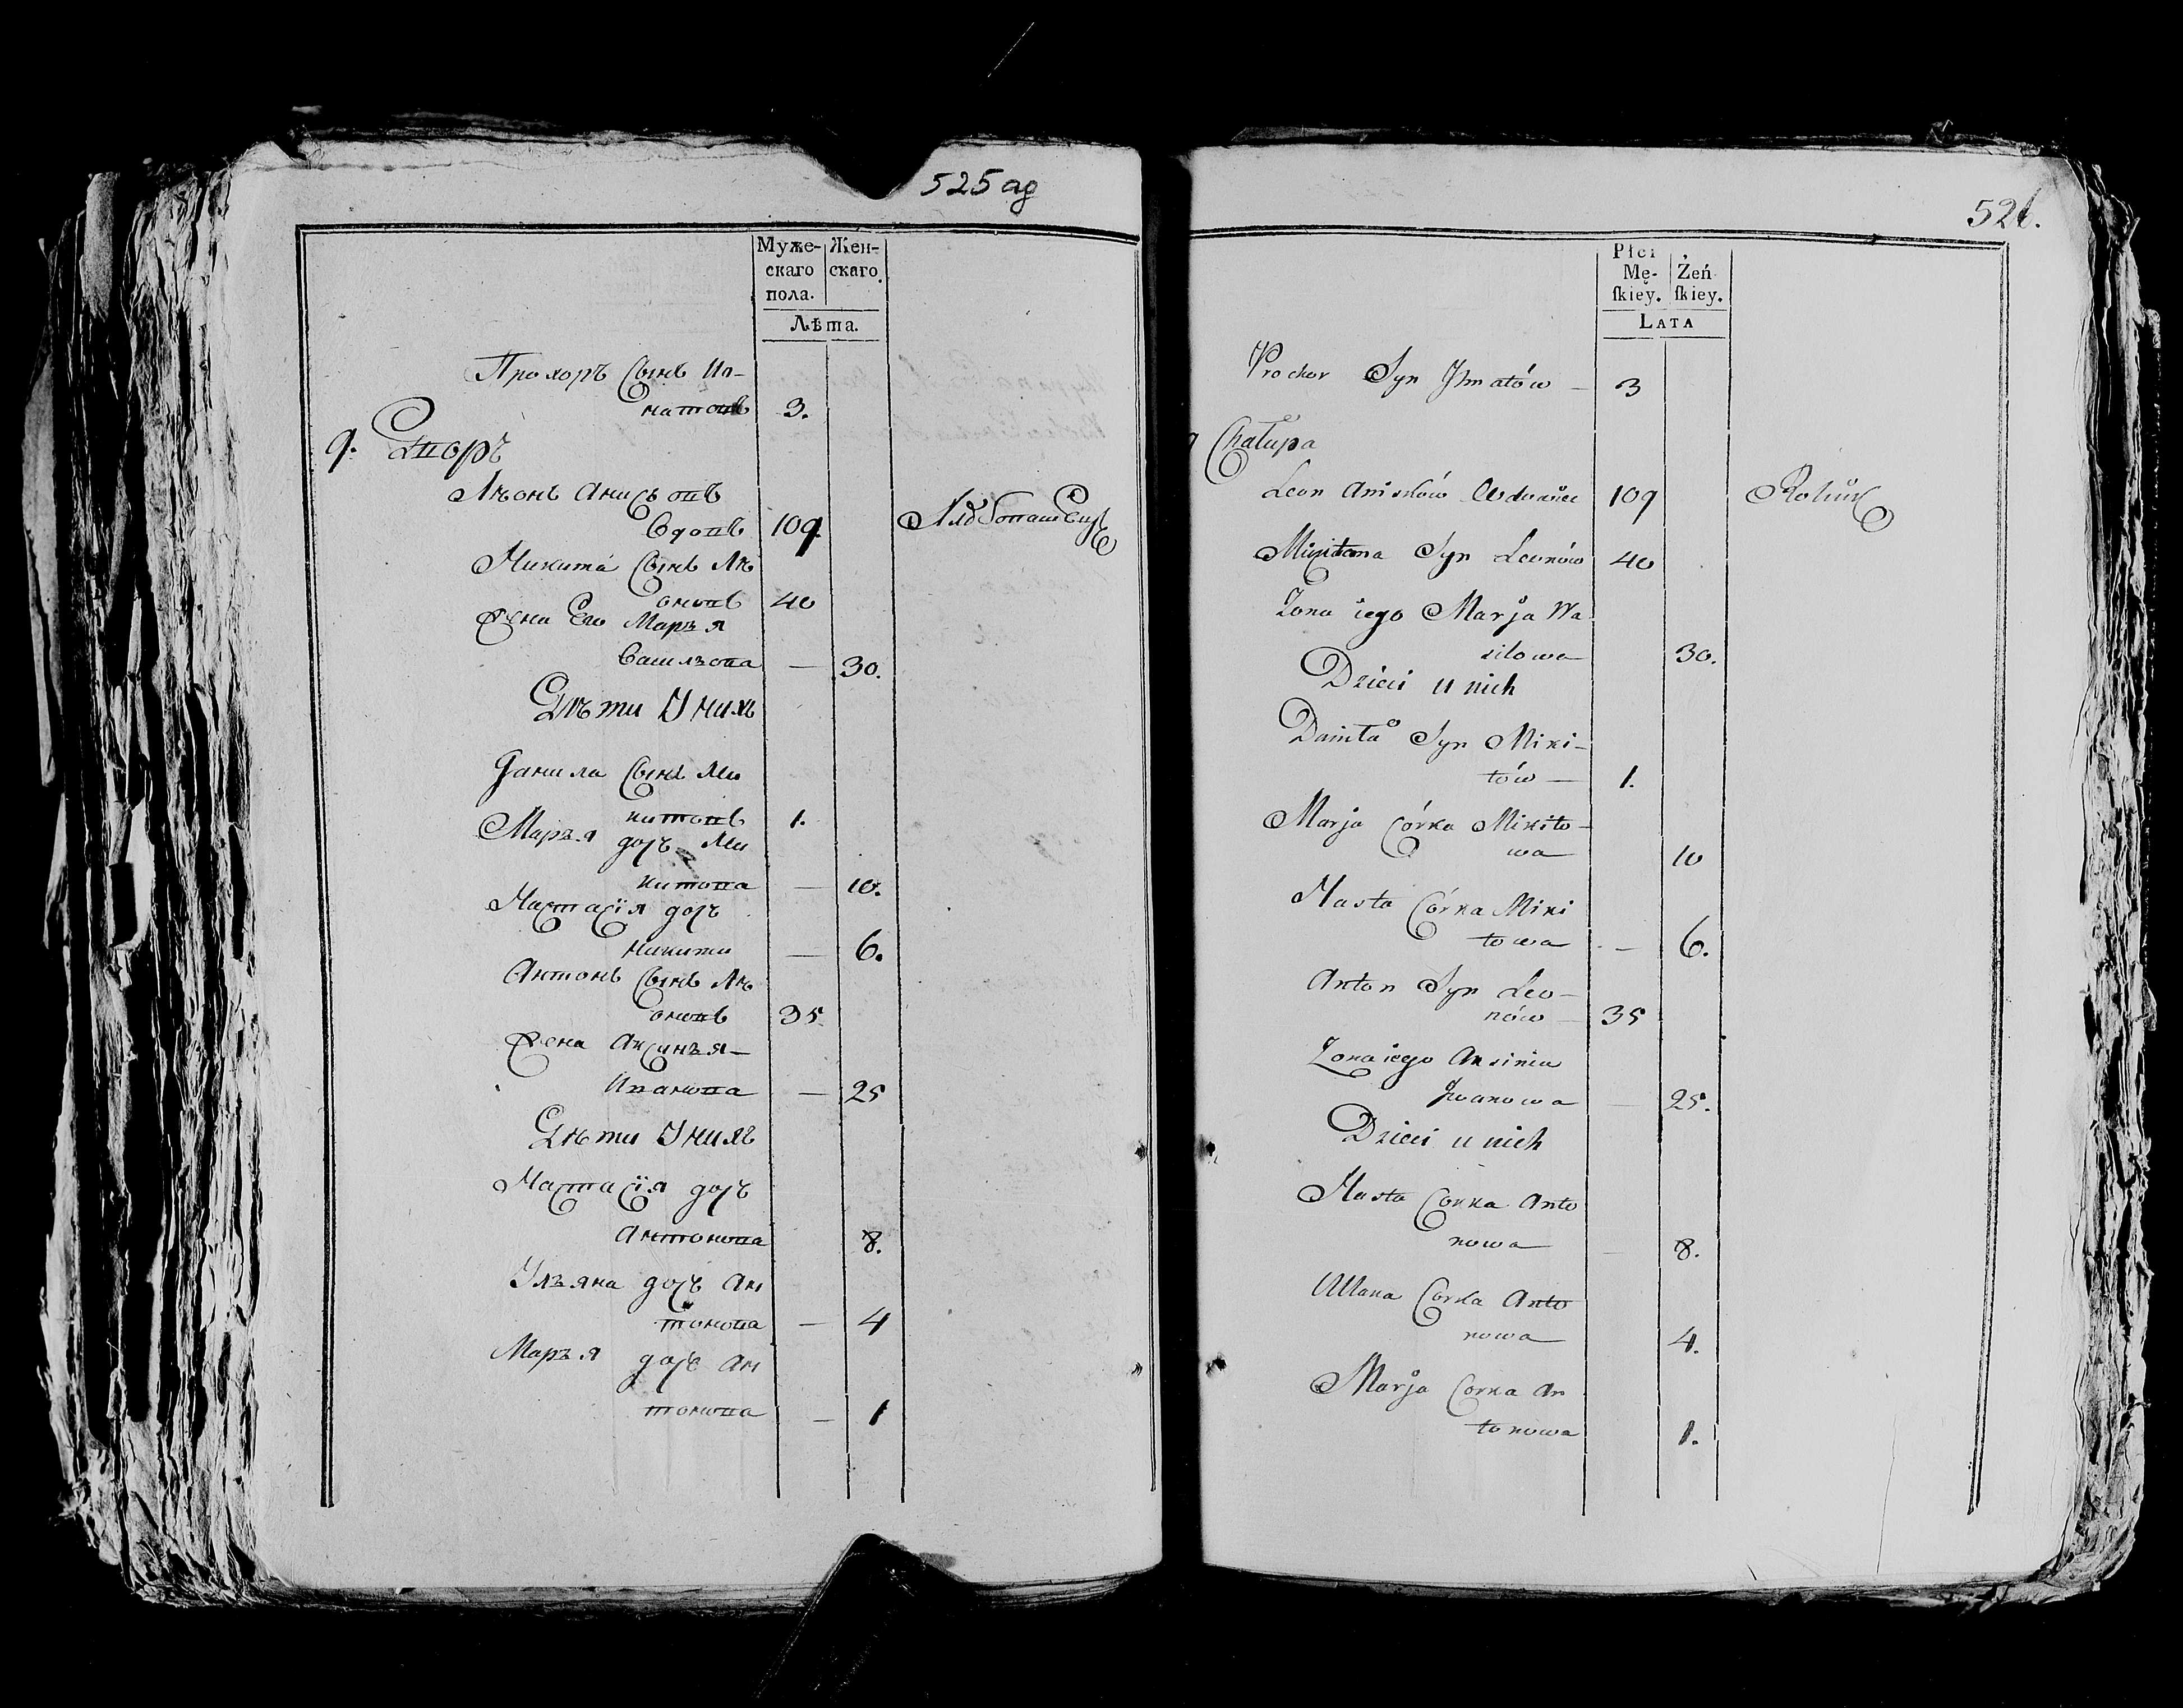 525 ад
Муже- Жен-
скаго скаго
пола.
Лѣта.
Прохоръ Сынъ Иг-
натовъ 3.
9. Дворъ
Лѣонъ Анисъовъ
Вдовъ 109. Хлѣбопашецъ
Никита Сынъ Лѣ
оновъ 40
Жена Его Марья
Василъова — 30.
Дѣти Унихъ
Данила Сынъ Ми
китовъ 1.
Маръя дочъ Ми
китова — 10.
Настасія дочъ
Микити — 6.
Антонъ Сынъ Лѣ
оновъ 35.
Жена Аксинъя —
Иванова — 25
Дѣти Унихъ
Настасія дочъ
Антонова 8.
Улъяна дочъ Ан
тонова — 4
Маръя дочъ Ан
тонова — 1
526.
Płci
Mę- Żeń
ſkiey. ſkiey.
LATA
Prochor Syn Jhnatów — 3
9 Chałupa
Leon Anisków Wdowiec 109 Rolnik
Syn Leonów 40
Żona iego Marja Wa
silowa 30.
Dzieci u nich
Daniła Syn Miki-
tów — 1.
Marja Córka Mikito-
wa 10
Nasta Córka Miki
towa — 6.
Anton Syn Leo-
nów — 35
Żona iego Aksinia
Jwanowa — 25.
Dzieci u nich
Nasta Corka Anto
nowa — 8.
Ullana Corka Anto
nowa 4.
Marja Corka An
tonowa 1.